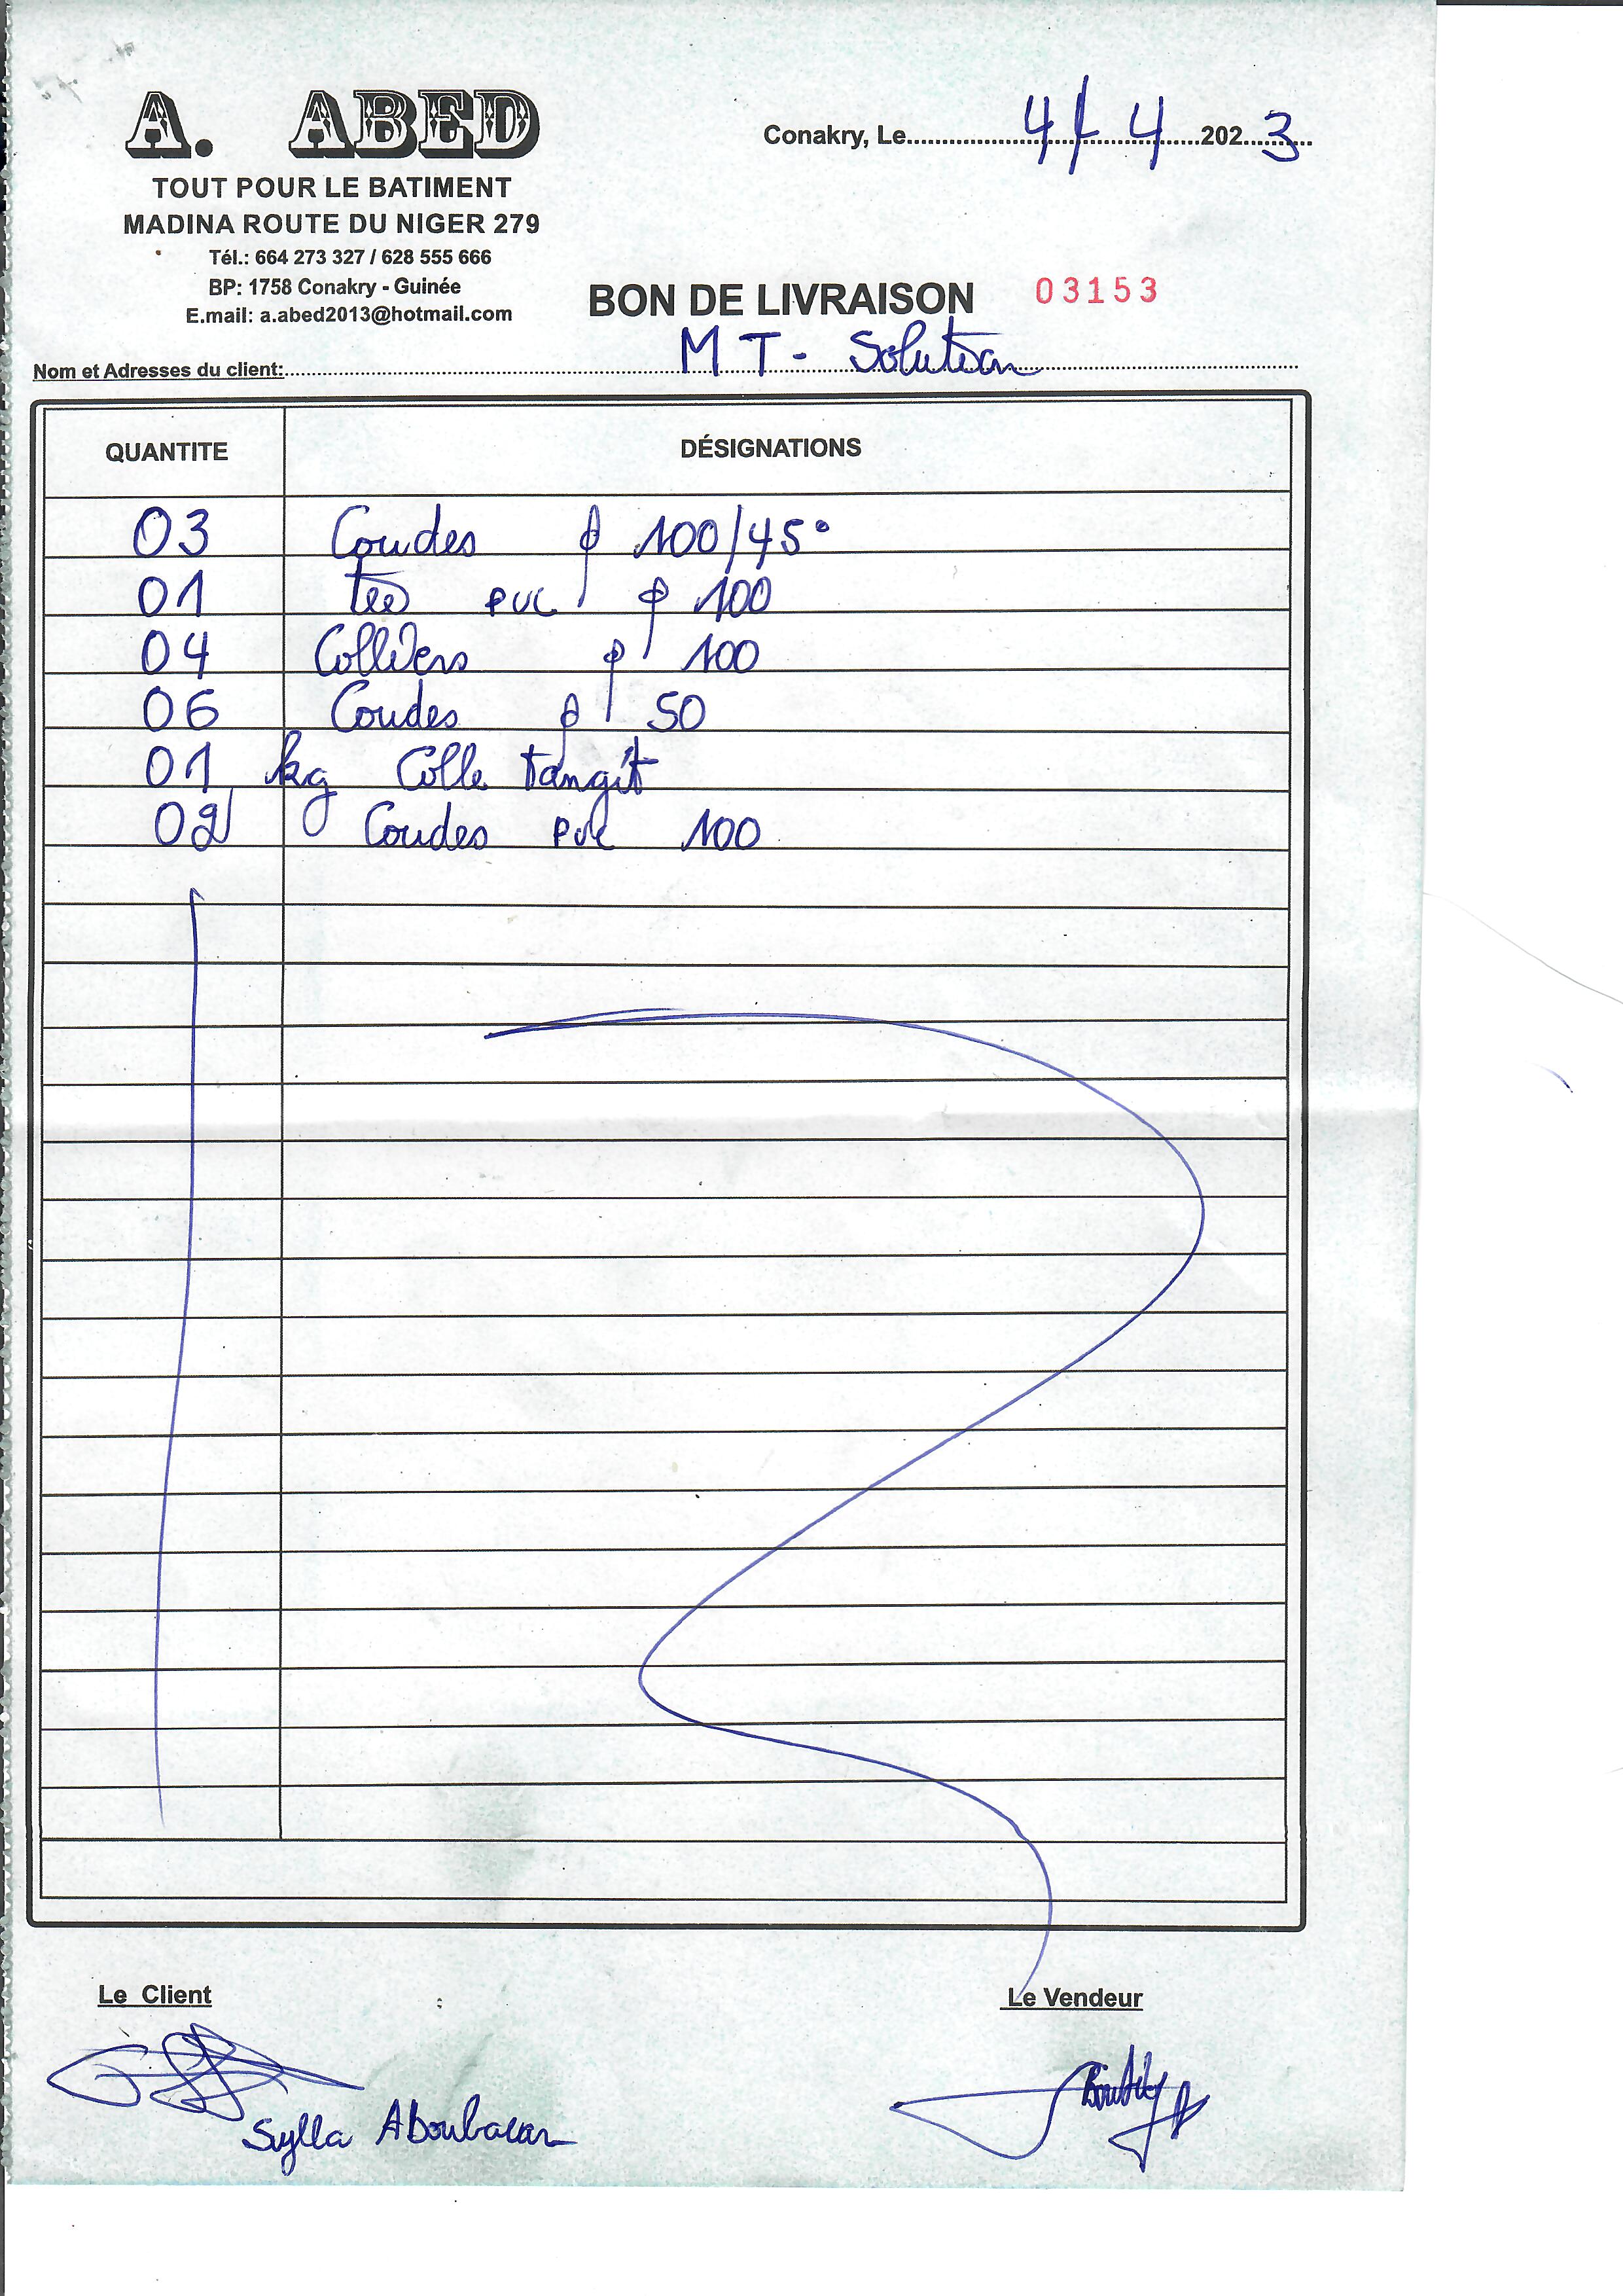 A. ABED
TOUT POUR LE BATIMENT
MADINA ROUTE DU NIGER 279
Tél.: 664 273 327 / 628 555 666
BP: 1758 Conakry - Guinée
E.mail: a.abed2013@hotmail.com
Conakry, Le 4/4 2023
BON DE LIVRAISON 03153
Nom et Adresses du client: MT-Solution
QUANTITE DÉSIGNATIONS
03 Coudes ø 100/45°
01 tee pvc ø 100
04 Colliers ø 100
06 Coudes ø 50
01 kg Colle tangit
02 Coudes pvc 100
Le Client Le Vendeur
Sylla Aboubacar